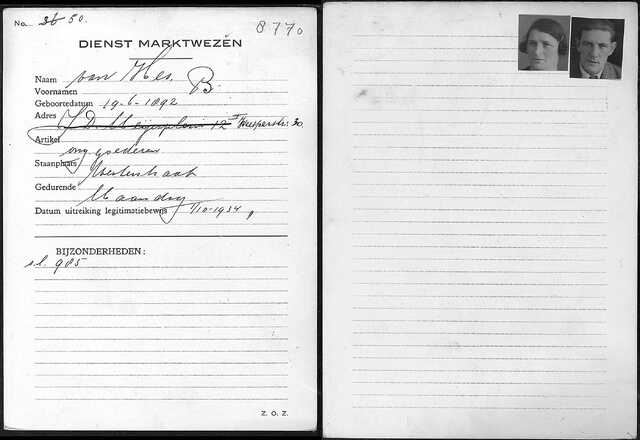 No. 3b 50.
8770
DIENST MARKTWEZEN
Naam van Hes.
Voornamen B.
Geboortedatum 19-6-1892
Adres J. D. Meijerplein 12 I Weesperstr. 30
Artikel
ong goederen
Staanplaats
Gedurende Maandag
Datum uitreiking legitimatiebewijs 1/10-1934
BIJZONDERHEDEN:
s.l. 985
Z. O. Z.